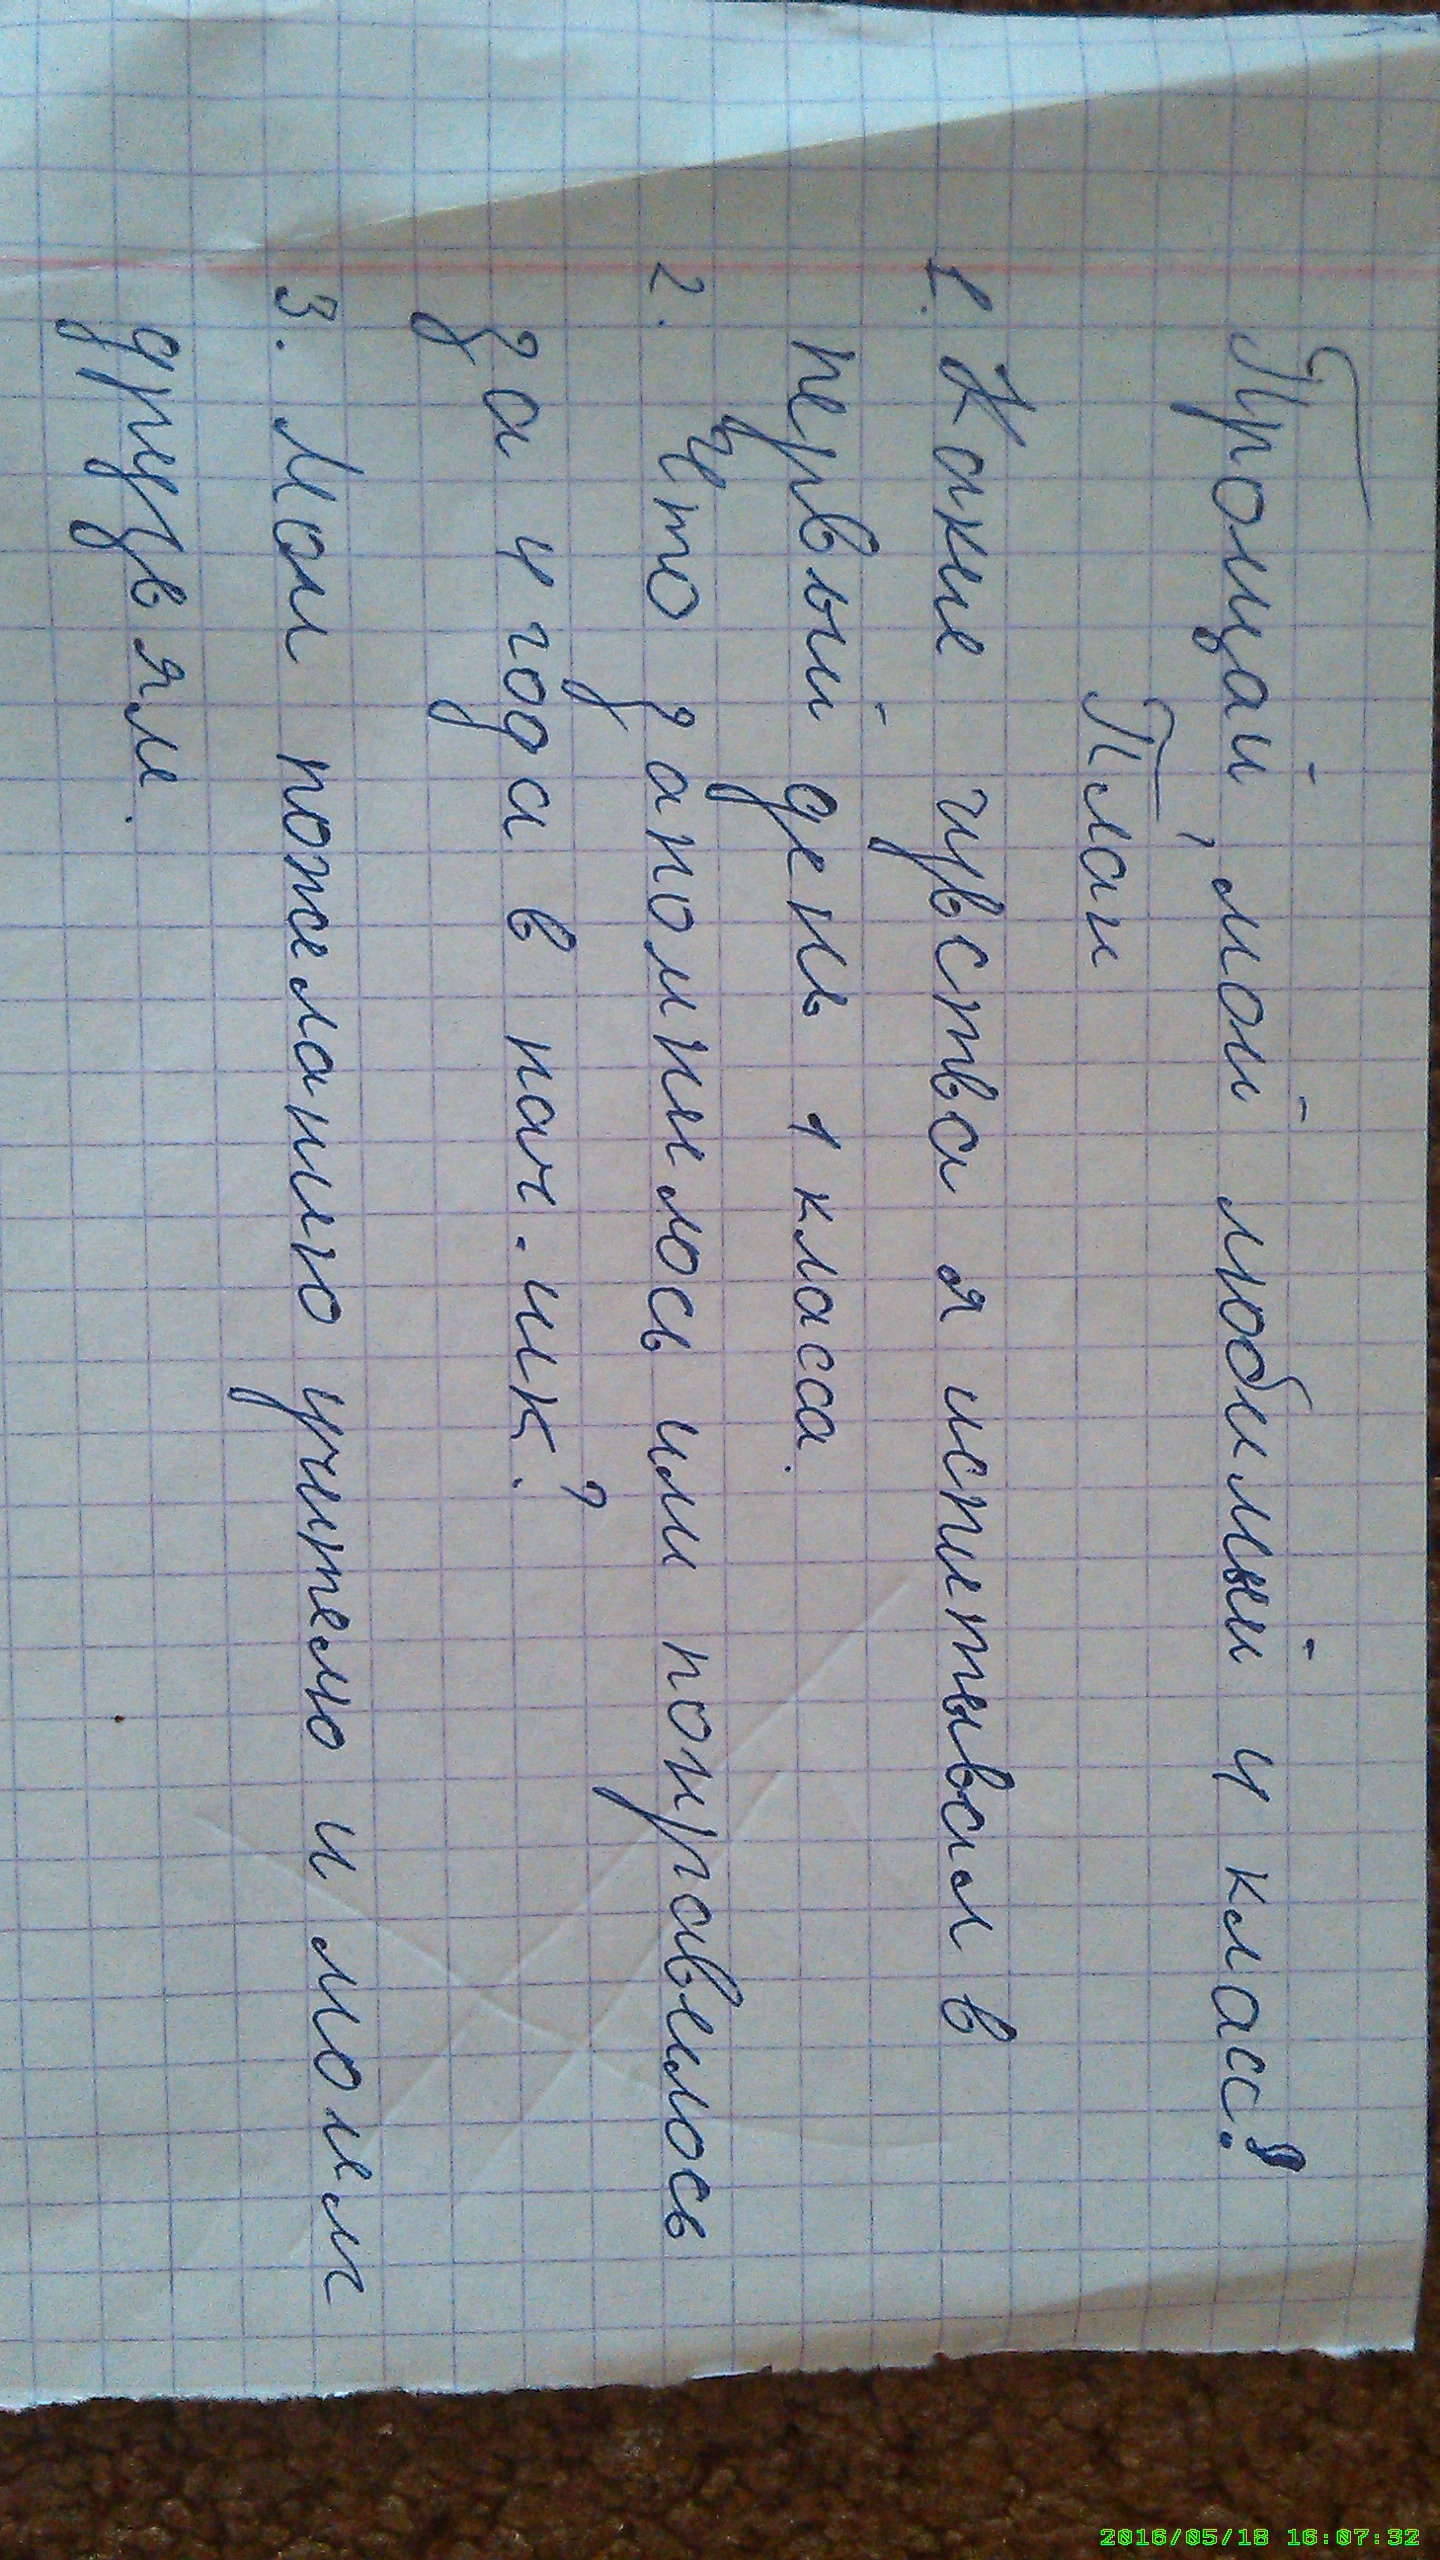 Прощай, мой любимый 4 класс!
План
1. Какие чувства я испытывал в
первый день 1 класса.
2. Что запомнилось или понравилось
за 4 года в нач. шк.?
3. Мои пожеланию учителю и моем
друзьям.
2016/05/18 16:07:32